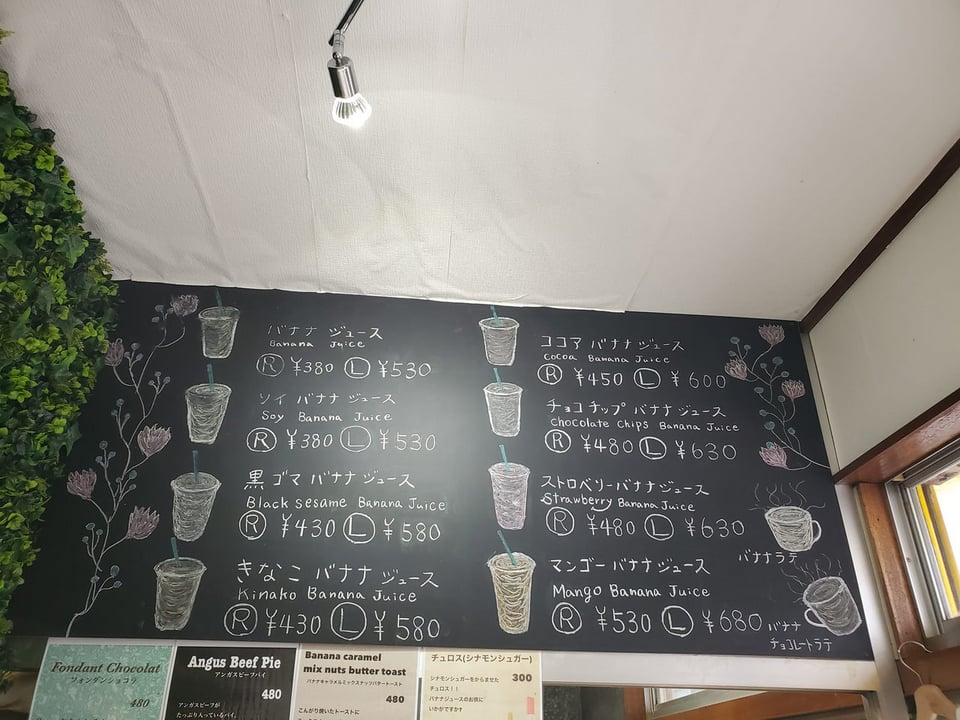 バナナ ジュース
Banana Juice
Ⓡ ¥380 Ⓛ ¥530
ソイ バナナ ジュース
Soy Banana Juice
Ⓡ ¥380 Ⓛ ¥530
黒ゴマ バナナ ジュース
Black sesame Banana Juice
Ⓡ ¥430 Ⓛ ¥580
きなこ バナナ ジュース
Kinako Banana Juice
Ⓡ ¥430 Ⓛ ¥580
ココア バナナ ジュース
Cocoa Banana Juice
Ⓡ ¥450 Ⓛ ¥600
チョコチップ バナナ ジュース
chocolate chips Banana Juice
Ⓡ ¥480 Ⓛ ¥630
ストロベリーバナナジュース
Strawberry Banana Juice
Ⓡ ¥480 Ⓛ ¥630
マンゴー バナナ ジュース
Mango Banana Juice
Ⓡ ¥530 Ⓛ ¥680
バナナラテ
バナナ
チョコレートラテ
Fondant Chocolat
フォンダンショコラ
480
Angus Beef Pie
アンガスビーフパイ
480
アンガスビーフが
たっぷり入っているパイ。
Banana caramel
mix nuts butter toast
バナナキャラメルミックスナッツバタートースト
480
こんがり焼いたトーストに
チュロス(シナモンシュガー)
300
シナモンシュガーをからませた
チュロス!!
バナナジュースのお供に
いかがですか?